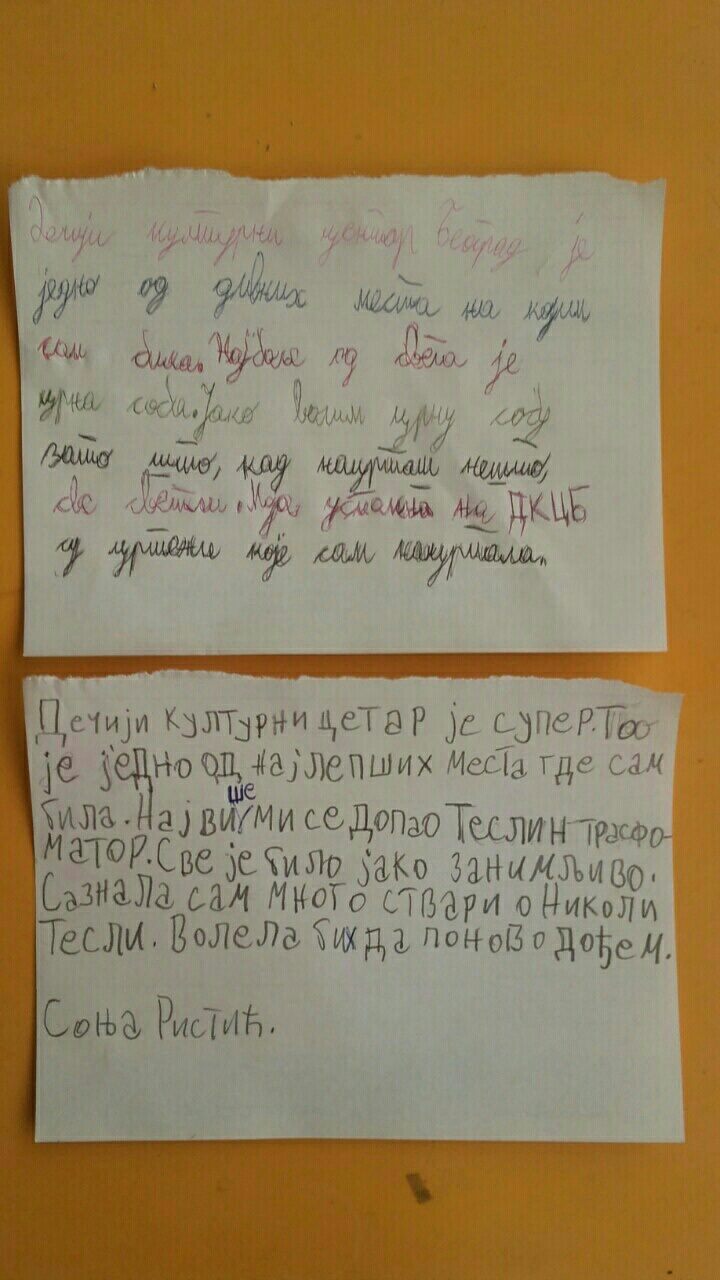 Дечији културни центар Београд је
једно од дивних места на којим
сам била. Најбоља од света је
црна соба. Јако волим црну собу
зато што, кад нацрташ нешто,
све светли. на ДКЦБ
од цртежи које сам нацртала.
Дечији културни цетар је супер. Тоо
је једно од најлепших места где сам
била. Највише ми се допао Теслин трасфо-
матор. Све је било јако занимљиво.
Сазнала сам много ствари о Николи
Тесли. Волела бих да поново дођем.
Соња Ристић.